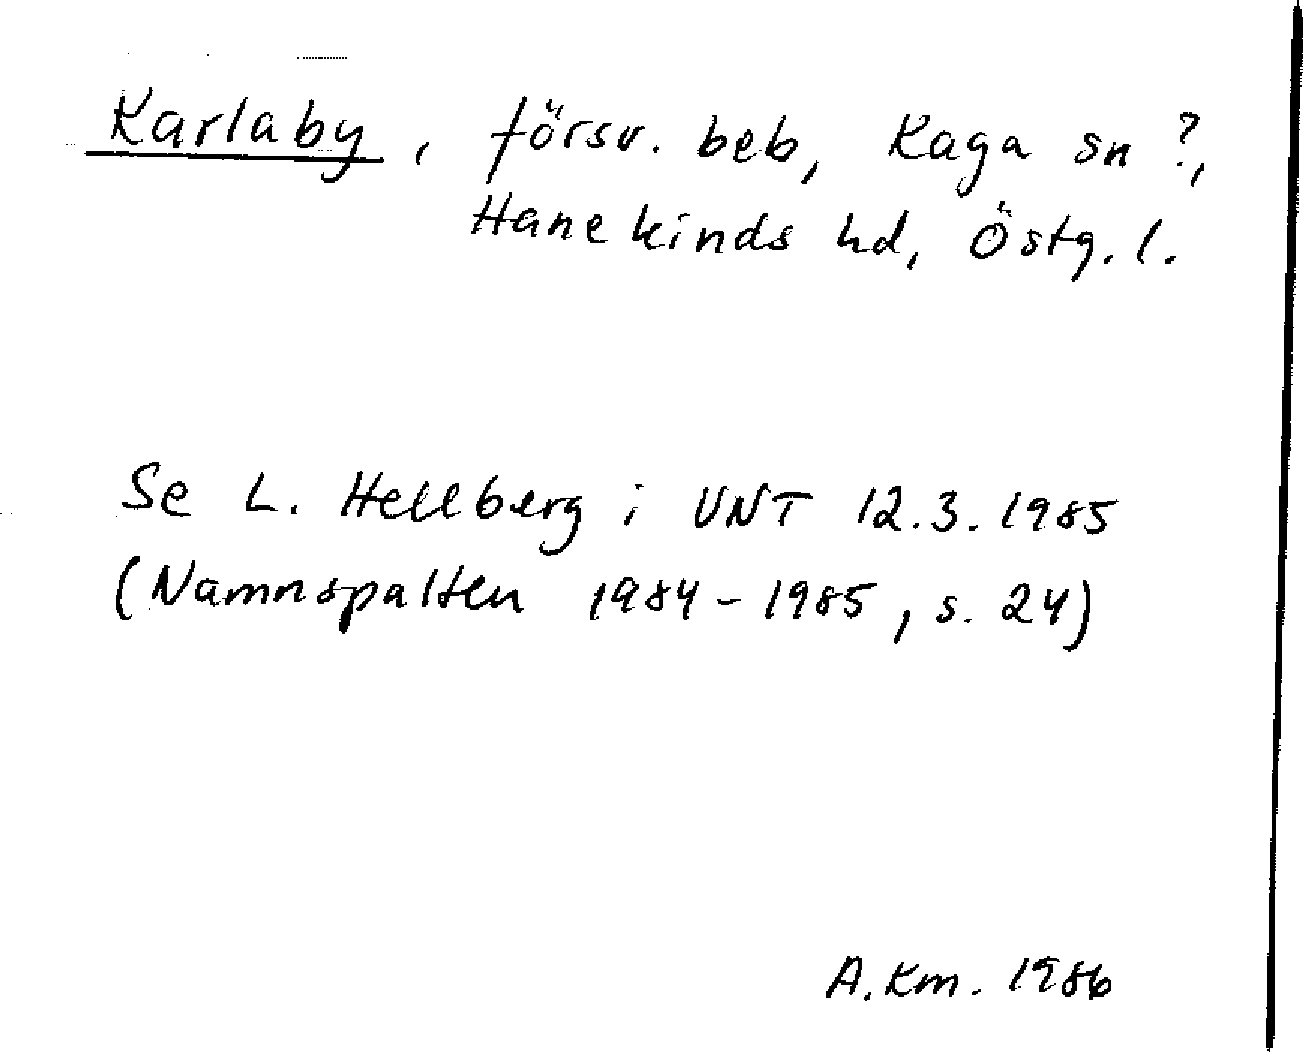 Karlaby, försv. beb, Kaga sn ?,
Hanekinds hd, Östg. l.
Se L. Hellberg i UNT 12.3.1985
(Namnspalten 1984-1985, s. 24)
A. Km. 1986